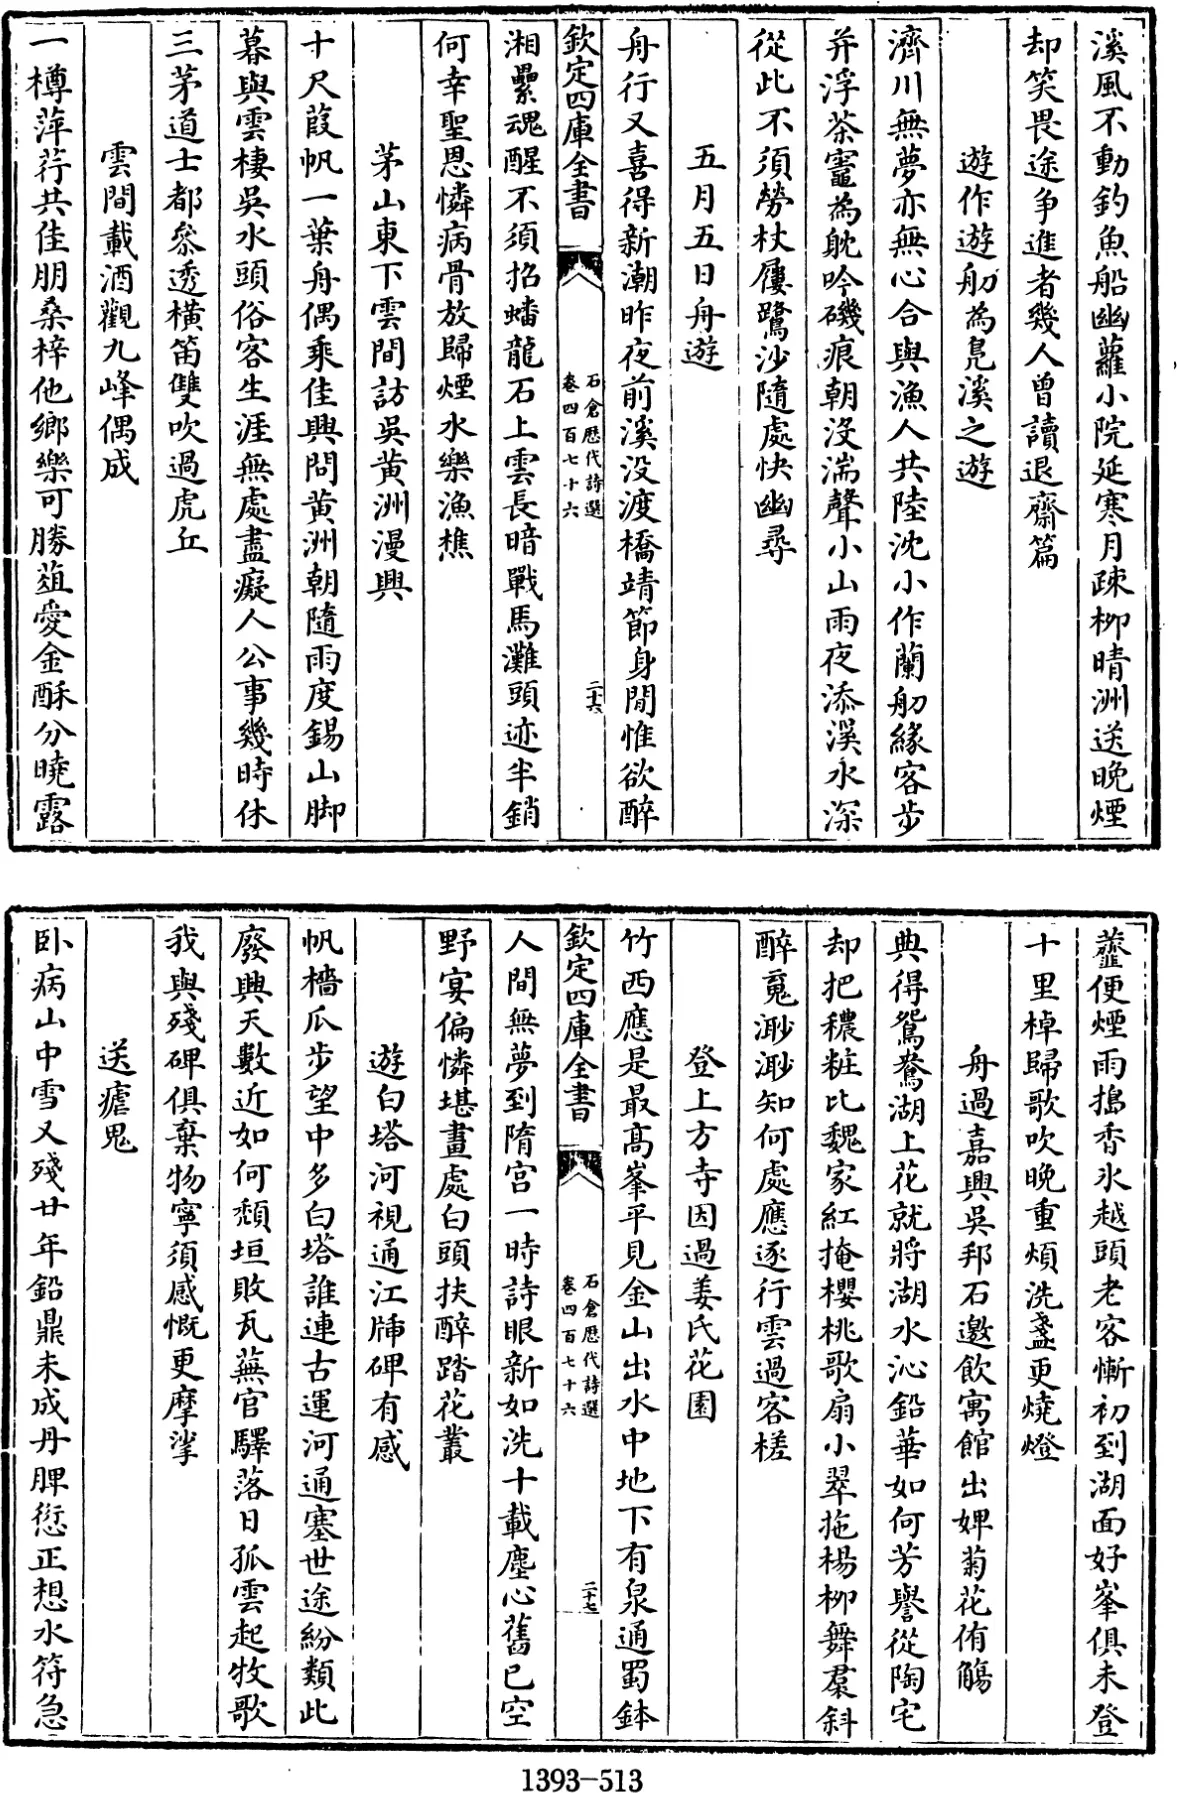 溪風不動釣魚船幽蘿小院延寒月疎栁晴洲送晩煙
却笑畏途爭進者幾人曾讀退齋篇
遊作遊舠為鳬溪之遊
濟川無夢亦無心合與漁人共陸沈小作蘭舠緣客步
并浮茶竈為躭吟磯痕朝沒湍聲小山雨夜添溪水深
從此不須勞杖屨鷺沙隨處快幽尋
五月五日舟遊
舟行又喜得新潮昨夜前溪沒渡橋靖節身閒惟欲醉
欽定四庫全書
石倉歷代詩選
卷四百七十六
二十六
湘纍魂醒不須招蟠龍石上雲長暗戰馬灘頭迹半銷
何幸聖恩憐病骨放歸煙水樂漁樵
茅山東下雲間訪吳黃洲漫興
十尺葭帆一葉舟偶乘佳興問黃洲朝隨雨度錫山脚
暮與雲棲吳水頭俗客生涯無處盡癡人公事幾時休
三茅道士都叅透橫笛雙吹過虎丘
雲間載酒觀九峰偶成
一樽萍荇共佳朋桑梓他鄉樂可勝葅愛金酥分曉露
虀便煙雨搗香氷越頭老客慚初到湖面好峯俱未登
十里棹歸歌吹晩重煩洗盞更燒燈
舟過嘉興吳邦石邀飲寓館出婢菊花侑觴
典得鴛鴦湖上花就將湖水沁鉛華如何芳譽從陶宅
却把穠粧比魏家紅掩櫻桃歌扇小翠拖楊栁舞裙斜
醉覔渺渺知何處應逐行雲過客槎
登上方寺因過姜氏花園
竹西應是最高峯平見金山出水中地下有泉通蜀鉢
欽定四庫全書
石倉歷代詩選
卷四百七十六
二十七
人間無夢到隋宮一時詩眼新如洗十載塵心舊已空
野宴偏憐堪畫處白頭扶醉踏花叢
遊白塔河視通江牐碑有感
帆檣瓜步望中多白塔誰連古運河通塞世途紛類此
廢興天數近如何頽垣敗瓦蕪官驛落日孤雲起牧歌
我與殘碑俱棄物寧須感慨更摩挲
送瘧鬼
卧病山中雪又殘廿年鉛鼎未成丹脾愆正想水符急
1393-513